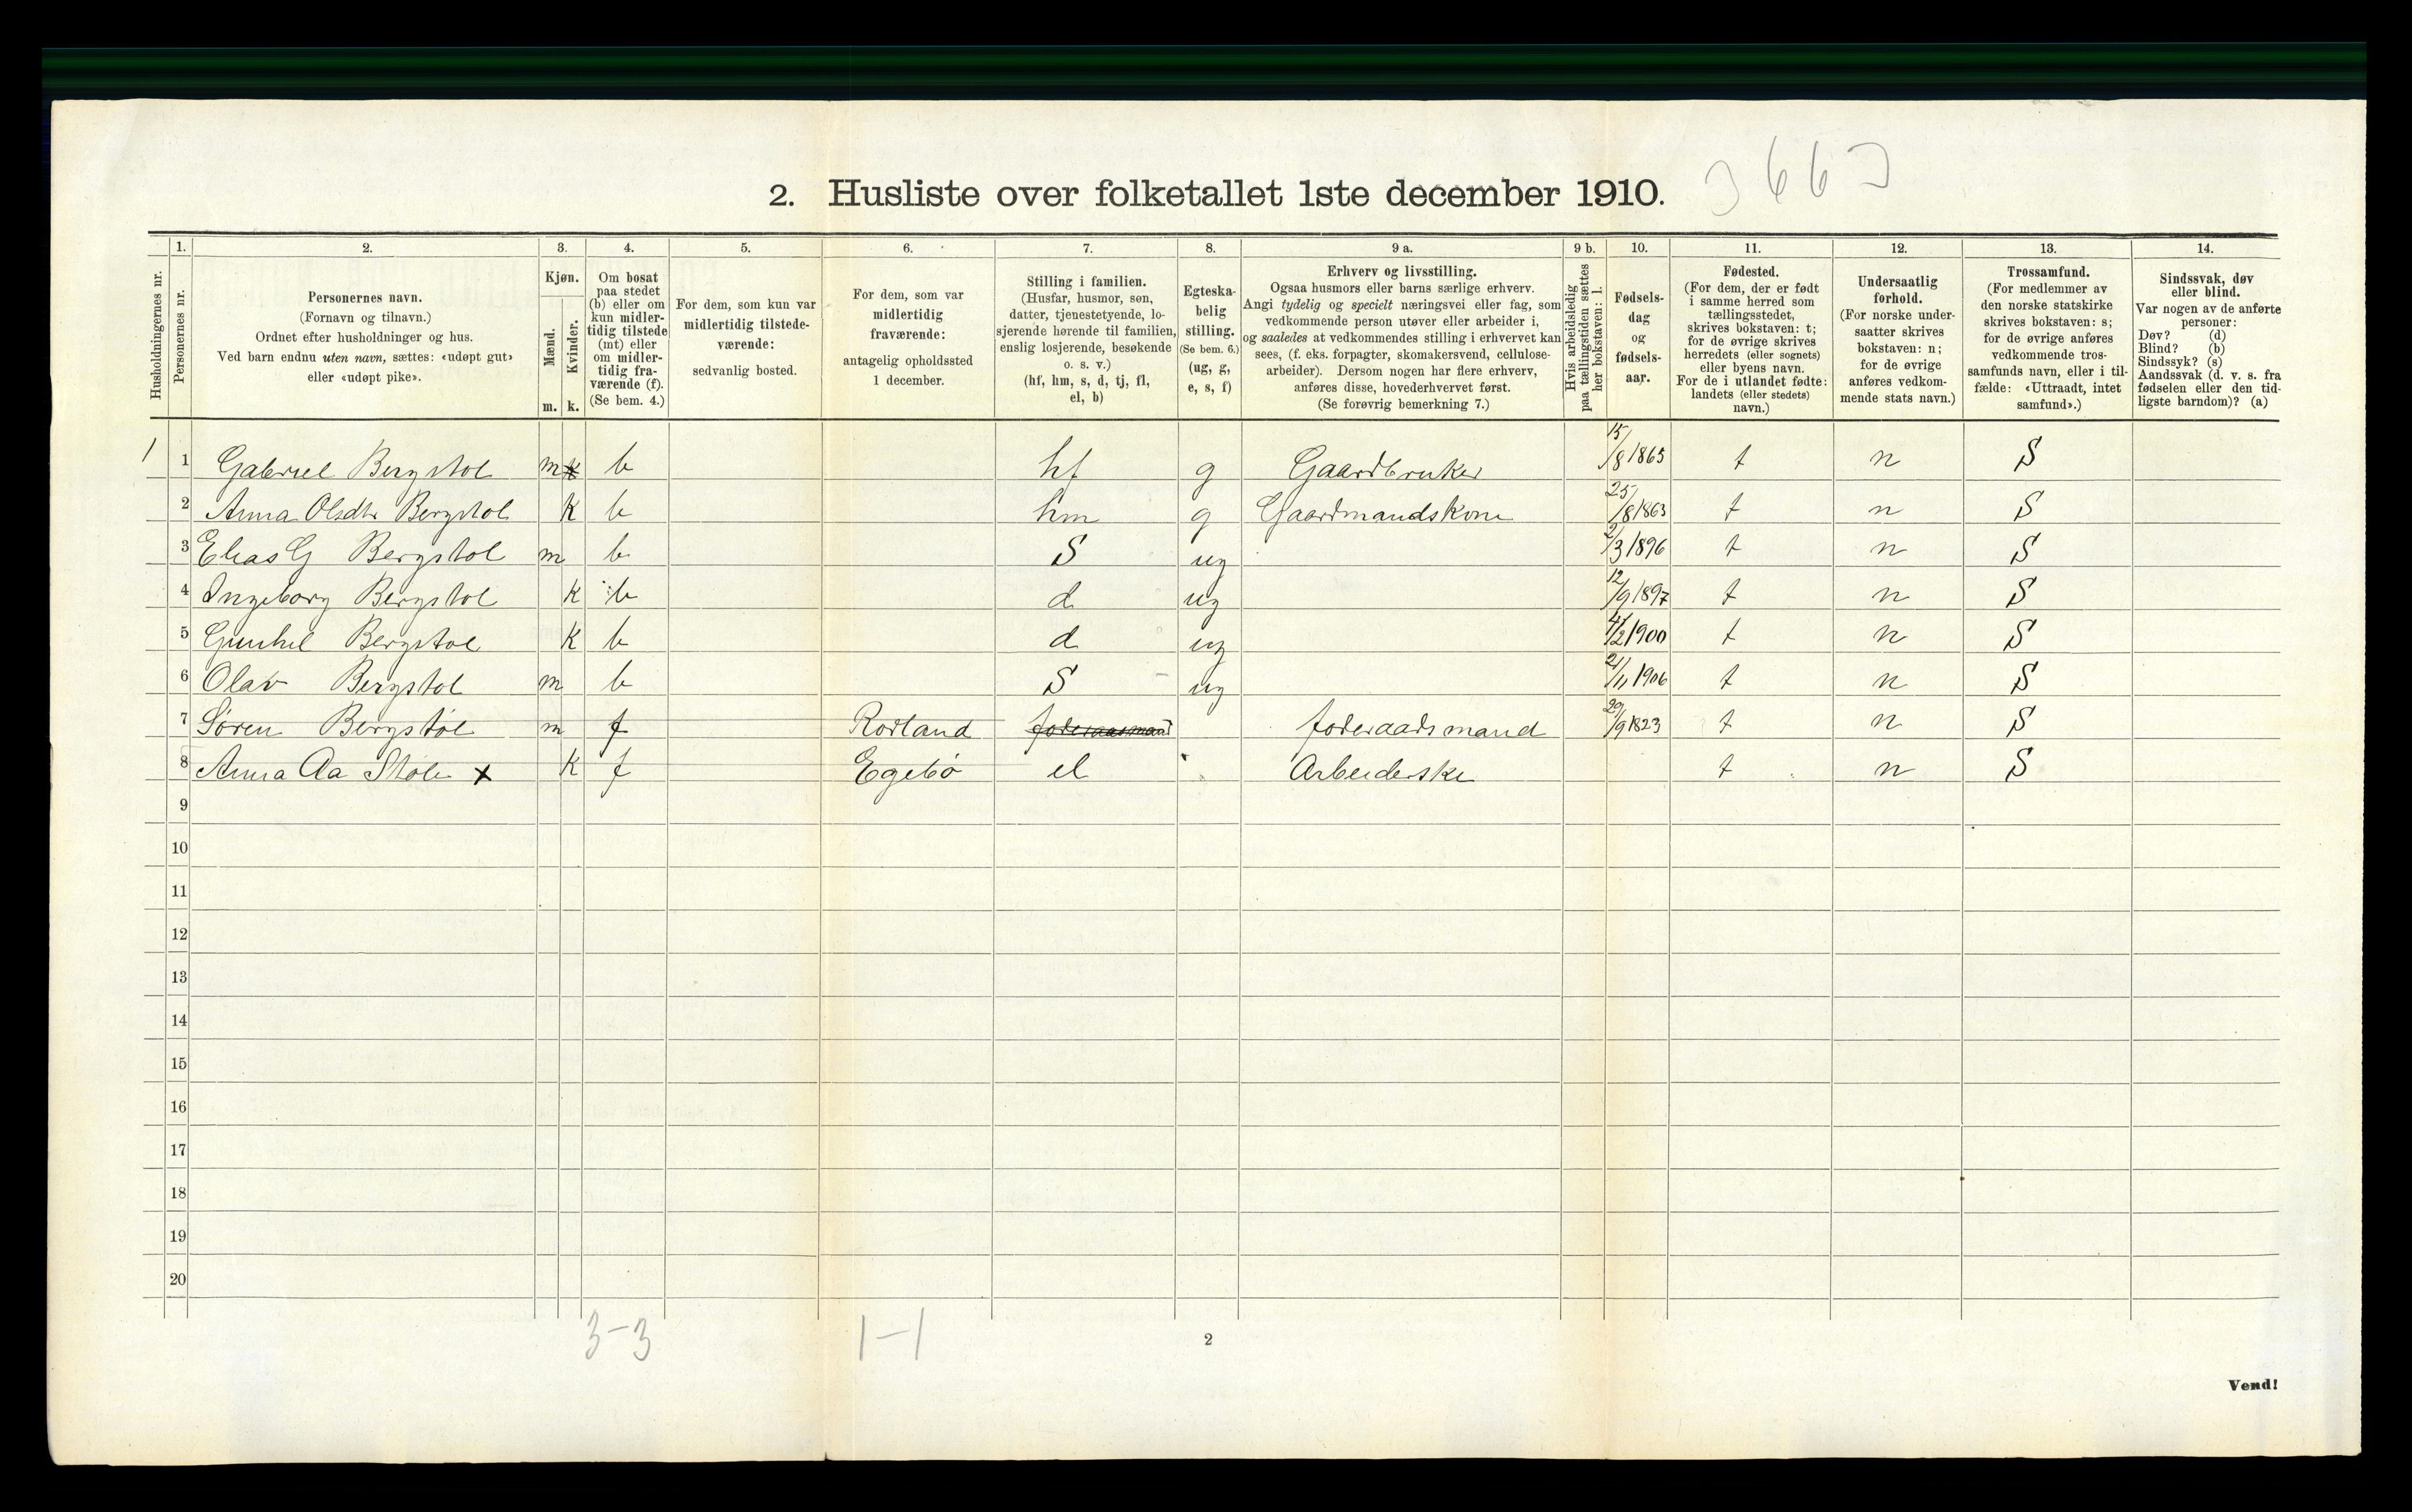 2. Husliste over folketallet 1ste december 1910.
3663
Husholdningernes nr.
1.
Personernes nr.
2.
Personernes navn.
(Fornavn og tilnavn.)
Ordnet efter husholdninger og hus.
Ved barn endnu uten navn, sættes: «udøpt gut»
eller «udøpt pike».
3.
Kjøn.
Mænd.
Kvinder.
m. k.
4.
Om bosat
paa stedet
(b) eller om
kun midler-
tidig tilstede
(mt) eller
om midler-
tidig fra-
værende (f).
(Se bem. 4.)
5.
For dem, som kun var
midlertidig tilstede-
værende:
sedvanlig bosted.
6.
For dem, som var
midlertidig
fraværende:
antagelig opholdssted
1 december.
7.
Stilling i familien.
(Husfar, husmor, søn,
datter, tjenestetyende, lo-
sjerende hørende til familien,
enslig losjerende, besøkende
o. s. v.)
(hf, hm, s, d, tj, fl,
el, b)
8.
Egteska-
belig
stilling.
(Se bem. 6.)
(ug, g,
e, s, f)
9 a.
Erhverv og livsstilling.
Ogsaa husmors eller barns særlige erhverv.
Angi tydelig og specielt næringsvei eller fag, som
vedkommende person utøver eller arbeider i,
og saaledes at vedkommendes stilling i erhvervet kan
sees, (f. eks. forpagter, skomakersvend, cellulose-
arbeider). Dersom nogen har flere erhverv,
anføres disse, hovederhvervet først.
(Se forøvrig bemerkning 7.)
9 b.
Hvis arbeidsledig
paa tællingstiden sættes
her bokstaven: l.
10.
Fødsels-
dag
og
fødsels-
aar.
11.
Fødested.
(For dem, der er født
i samme herred som
tællingsstedet,
skrives bokstaven: t;
for de øvrige skrives
herredets (eller sognets)
eller byens navn.
For de i utlandet fødte:
landets (eller stedets)
navn.)
12.
Undersaatlig
forhold.
(For norske under-
saatter skrives
bokstaven: n;
for de øvrige
anføres vedkom-
mende stats navn.)
13.
Trossamfund.
(For medlemmer av
den norske statskirke
skrives bokstaven: s;
for de øvrige anføres
vedkommende tros-
samfunds navn, eller i til-
fælde: «Uttraadt, intet
samfund».)
14.
Sindssvak, døv
eller blind.
Var nogen av de anførte
personer:
Døv? (d)
Blind? (b)
Sindssyk? (s)
Aandssvak (d. v. s. fra
fødselen eller den tid-
ligste barndom)? (a)
1 1 Gabriel Bergstol m k b hf g Gaardbruker 15/8 1865 t n S
2 Anna Olsdtr Bergstol k b hm g Gaardmandskone 25/8 1863 t n S
3 Elias G Bergstol m b S ug 2/3 1896 t n S
4 Ingeborg Bergstol k b d ug 12/9 1897 t n S
5 Gunhil Bergstol k b d ug 4/2 1900 t n S
6 Olav Bergstol m b S ug 21/11 1906 t n S
7 Søren Bergstøl m f Rosland foderaasmand foderaadsmand 29/9 1823 t n S
8 Anna Aa Stole x k f Egebø el Arbeiderske t n S
9
10
11
12
13
14
15
16
17
18
19
20
3-3 1-1
2
Vend!